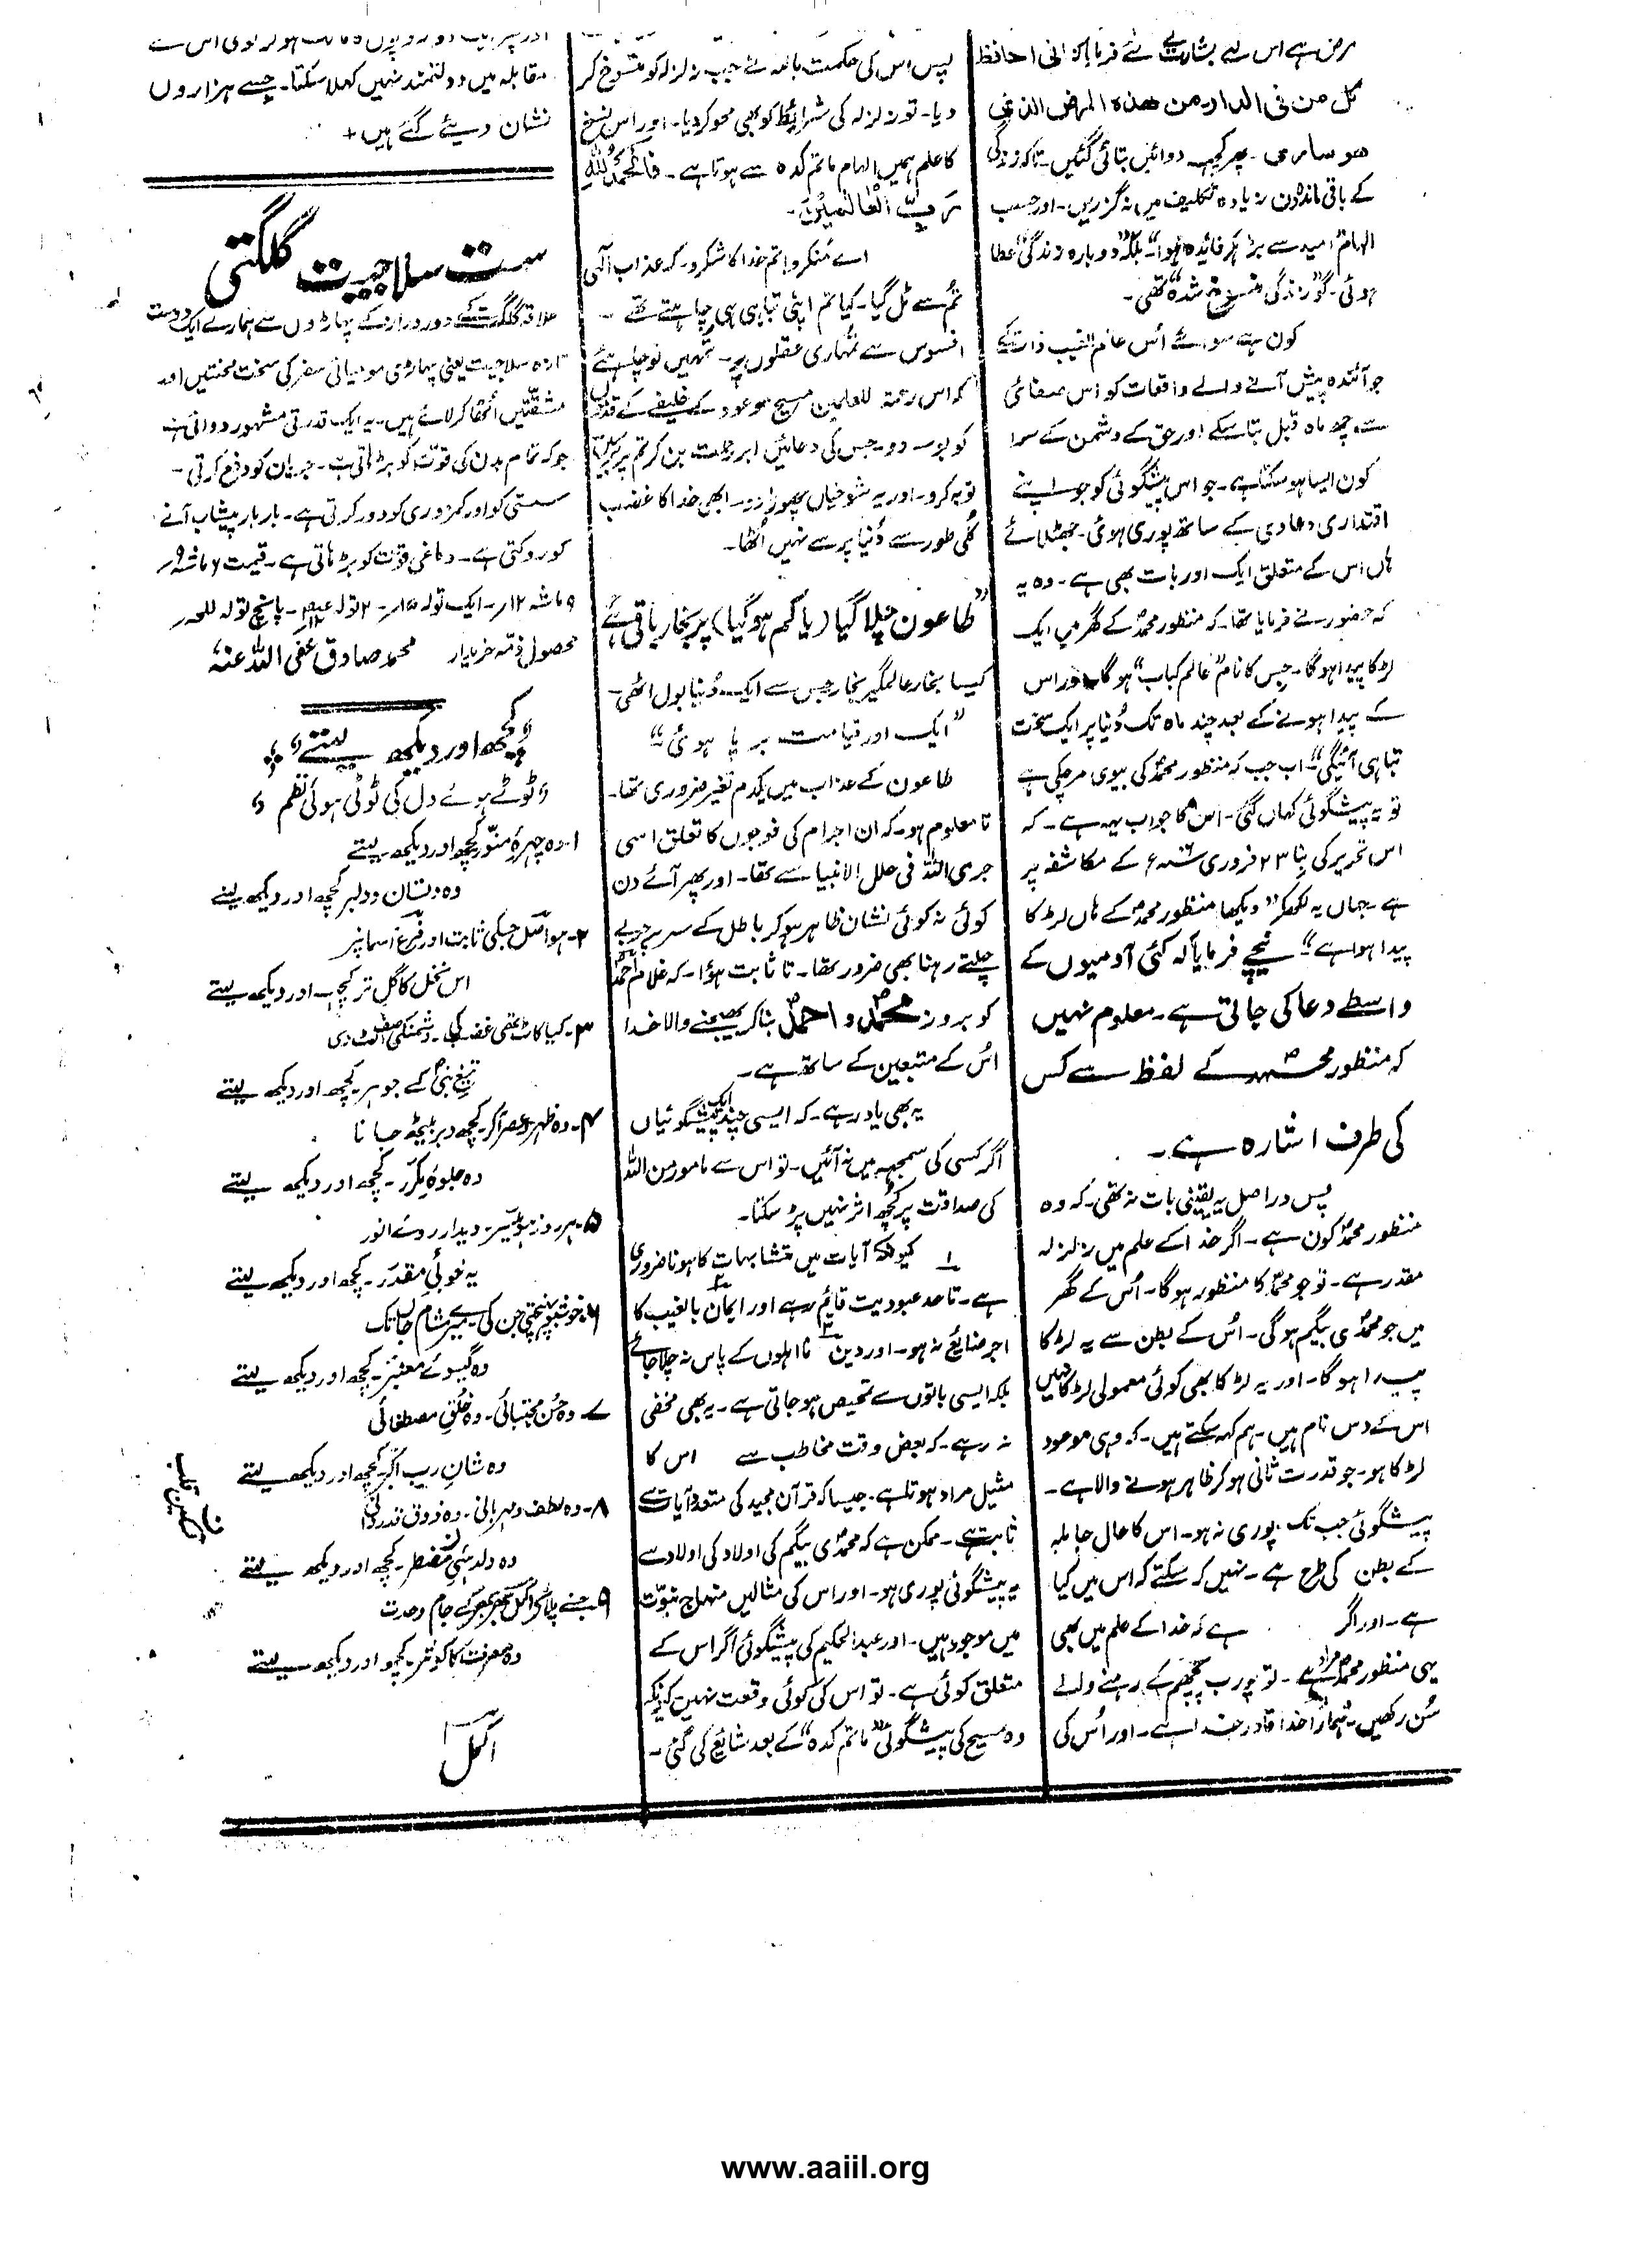 مرض ہے اس لیے بشارت کے لئے فرمایا کہ انی احافظ
کل من فی الدار من ھذہ المرض الذی
ھو ساری۔ پھر کچہہ دوائیں بتائی گئیں۔ تاکہ زندگی
کے باقی ماندہ دن زیادہ تکلیف میں نہ گزریں۔ اور حسب
الہام امید سے بڑھکر فائدہ ہوا۔ بلکہ "دوبارہ زندگی" عطا
ہوئی۔ گو "زندگی منسوخ شدہ" تھی۔
کون ہے سوائے اُس عالم الغیب ذات کے
جو آئندہ پیش آنے والے واقعات کو اس صفائی
سے چھ ماہ قبل بتا سکے اور حق کے دشمن کے سوا
کون ایسا ہو سکتا ہے۔ جو اس پیشگوئی کو جو اپنے
اقتداری دعاوی کے ساتھ پوری ہوئی۔ جھٹلائے
ہاں اس کے متعلق ایک اور بات بھی ہے۔ وہ یہ
کہ حضور نے فرمایا تھا۔ کہ منظور محمدؐ کے گھر میں ایک
لڑکا پیدا ہوگا۔ جس کا نام "عالم کباب" ہوگا۔ اور اس
کے پیدا ہونے کے بعد چند ماہ تک دُنیا پر ایک سخت
تباہی آئیگی"۔ اب جب کہ منظور محمدؐ کی بیوی مر چکی ہے
تو یہ پیشگوئی کہاں گئی۔ اس کا جواب یہہ ہے۔ کہ
اس تحریر کی بنا ۲۳ فروری ۱۹۰۶ء کے مکاشفہ پر
ہے۔ جہاں یہ لکھکر "دیکھا منظور محمدؐ کے ہاں لڑکا
پیدا ہوا ہے" نیچے فرمایا کہ کئی آدمیوں کے
واسطے دعا کی جاتی ہے۔ معلوم نہیں
کہ منظور محمدؐ کے لفظ سے کس
کی طرف اشارہ ہے۔
پس دراصل یہ یقینی بات نہ تھی۔ کہ وہ
منظور محمدؐ کون ہے۔ اگر خدا کے علم میں زلزلہ
مقدر ہے۔ تو جو محمدؐ کا منظور ہوگا۔ اُس کے گھر
میں جو محمدؐی بیگم ہوگی۔ اُس کے بطن سے یہ لڑکا
پیدا ہوگا۔ اور یہ لڑکا بھی کوئی معمولی لڑکا نہیں
اس کے دس نام ہیں۔ ہم کہہ سکتے ہیں۔ کہ وہی موعود
لڑکا ہو۔ جو قدرت ثانی ہو کر ظاہر ہونے والا ہے۔
پیشگوئی جب تک پوری نہ ہو۔ اس کا حال حاملہ
کے بطن کی طرح ہے۔ نہیں کہ سکتے کہ اس میں کیا
ہے۔ اور اگر ہے کہ خدا کے علم میں بھی
یہی منظور محمدؐ مراد ہے۔ تو پورب پچھم کے رہنے والے
سُن رکھیں۔ ہمارا خدا قادر خدا ہے۔ اور اُس کی
پس اس کی حکمت بالغہ نے جب زلزلہ کو منسوخ کر
دیا۔ تو زلزلہ کی شرائط کو بھی محو کر دیا۔ اور اس نسخ
کا علم ہمیں الہام ماتم کدہ سے ہوتا ہے۔ فالحمدُ للہِ
رَبِّ الْعَالَمِیْنَ۔
اے منکرو! تم خدا کا شکر کرو۔ کہ عذاب الٰہی
تُم سے ٹل گیا۔ کیا تم اپنی تباہی ہی چاہتے تھے۔
افسوس ہے تمہاری عقلوں پر۔ تمہیں تو چاہئے
کہ اس رحمۃ للعلمین مسیح موعود کے خلیفے کے قدموں
کو بوسہ دو۔ جس کی دعائیں ابر رحمت بن کر تم پر برسیں
توبہ کرو۔ اور یہ شوخیاں چھوڑ دو۔ ابھی خدا کا غضب
کُلّی طور سے دُنیا پر سے نہیں اُٹھا۔
"طاعون چلا گیا (یا کم ہوگیا) پر بخار باقی ہے"
کیسا بخار عالمگیر بخار جس سے ایک دُنیا بول اٹھی۔
"ایک اور قیامت برپا ہوئی"
طاعون کے عذاب میں یکدم تغیر ضروری تھا۔
تا معلوم ہو۔ کہ ان اجرام کی فوجوں کا تعلق اسی
جری اللہ فی حلل الانبیا سے تھا۔ اور پھر آئے دن
کوئی نہ کوئی نشان ظاہر ہو کر باطل کے سر پر حربے
چلتے رہنا بھی ضرور تھا۔ تا ثابت ہوُا۔ کہ غلام احمدؐ
کو بروز محمدؐ و احمدؐ بنا کر بھیجنے والا خدا
اُس کے متبعین کے ساتھ ہے۔
یہ بھی یاد رہے۔ کہ ایسی چند ایک پیشگوئیاں
اگر کسی کی سمجہہ میں نہ آئیں۔ تو اس سے مامور من اللہ
کی صداقت پر کُچھ اثر نہیں پڑ سکتا۔
۱ کیونکہ آیات میں متشابہات کا ہونا ضروری
ہے۔ تا حد عبودیت قائم رہے ۲ اور ایمان بالغیب کا
اجر ضائع نہ ہو۔ اور دین ۳ نااہلوں کے پاس نہ چلا جائے
بلکہ ایسی باتوں سے تمحیص ہو جاتی ہے۔ یہ بھی مخفی
نہ رہے۔ کہ بعض وقت مخاطب سے اس کا
مثیل مراد ہوتا ہے۔ جیسا کہ قرآن مجید کی متعدد آیات سے
ثابت ہے۔ ممکن ہے کہ محمدؐی بیگم کی اولاد کی اولاد سے
یہ پیشگوئی پوری ہو۔ اور اس کی مثالیں منہاج نبوّت
میں موجود ہیں۔ اور عبدالحکیم کی پیشگوئی اگر اس کے
متعلق کوئی ہے۔ تو اس کی کوئی وقعت نہیں کیونکہ
وہ مسیح کی پیشگوئی "ماتم کدہ" کے بعد شائع کی گئی۔
مقابلہ میں دولتمند نہیں کہلا سکتا۔ جسے ہزاروں
نشان دیئے گئے ہیں +
ست سلاجیت گلگتی
علاقہ گلگت کے دور دراز کے پہاڑوں سے ہمارے ایک دوست
تازہ سلاجیت یعنی پہاڑی مومیائی سفر کی سخت محنتیں اور
مشقّتیں اُٹھا کر لائے ہیں۔ یہ ایک قدرتی مشہور دوائی ہے
جو کہ تمام بدن کی قوّت کو بڑہاتی ہے۔ جریان کو دفع کرتی۔
سستی کو اور کمزوری کو دور کرتی ہے۔ بار بار پیشاب آنے
کو روکتی ہے۔ دماغی قوّت کو بڑہاتی ہے۔ قیمت ۶ ماشہ ۹ر
۹ ماشہ ۱۲ر۔ ایک تولہ ۱۵ر۔ ۲ تولہ۔ پانچ تولہ للعہ ر
محصول ذمّہ خریدار محمد صادق عفی اللہ عنہ
"کچھ اور دیکھ لیتے"
"ٹوٹے ہوئے دل کی ٹوٹی ہوئی نظم"
۱۔ وہ چہرۂ منوّر کچھ اور دیکھ لیتے
وہ شان دلبر کچھ اور دیکھ لیتے
۲۔ ہو اصل جسکی ثابت اور فرع آسمانپر
اس نخل کا گل تر کچہہ اور دیکھ لیتے
۳۔ کیا کاٹ تھی غضب کی۔ دشمنکی صف الٹ دی
تیغ نبیؐ کے جوہر۔ کچھ اور دیکھ لیتے
۴۔ وہ ظہر و عصر آکر۔ کچھ دیر بیٹھ جانا
وہ جلوۂ مکرّر۔ کچھ اور دیکھ لیتے
۵۔ ہر روز ہو میسر۔ دیدار روئے انور
یہ خوبئ مقدّر۔ کچھ اور دیکھ لیتے
۶۔ خوشبو پہنچتی جن کی ہے میرے مشام جاں تک
وہ گیسوئے معنبر۔ کچھ اور دیکھ لیتے
۷۔ وہ حُسن مجتبائی۔ وہ خُلق مصطفائی
وہ شانِ رب اکبر۔ کچھ اور دیکھ لیتے
۸۔ وہ لطف و مہربانی۔ وہ ذوق قدردانی
وہ دلدہئ مضطر۔ کچھ اور دیکھ لیتے
تسکین قلب
۹۔ جسنے پلائے اکمل بھر بھر کے جام وحدت
وہ معرفت کا کوثر۔ کچھ اور دیکھ لیتے
اکمل
www.aaiil.org